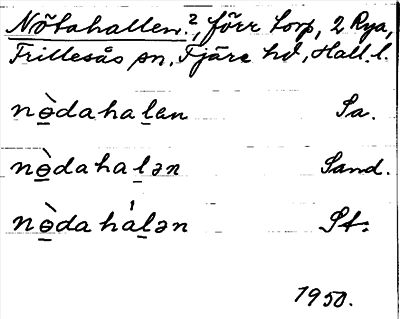 Nötahallen ?, förr torp, 2 Rya,
Frillesås sn, Fjäre hd, Hall. l.
nò̲daha l̲an Sa.
nò̲daha l̲ən Sand.
nò̲dahál̲ən St.
1950.